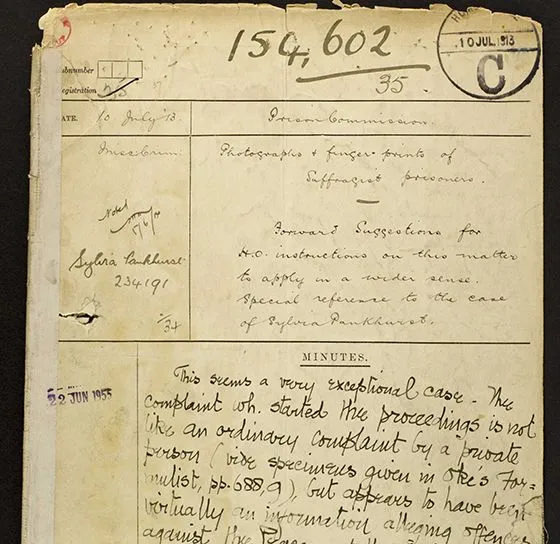 154,602
35.
10 JUL. 1913
C
DATE.
10 July '13
Prison Commission.
Miss: Crim:
Photographs & finger-prints of
Suffragist prisoners.
Forward Suggestions for
H.O. instructions on this matter
to apply in a wider sense.
Special reference to the case
of Sylvia Pankhurst.
Noted
Sylvia Pankhurst
234191
/34
MINUTES.
22 JUN 1955
This seems a very exceptional case. The
complaint wh. started the proceedings is not
like an ordinary complaint by a private
person (vide specimens given in Oke's For=
mulist, pp. 688, 9), but appears to have been
virtually an information alleging offences
against the